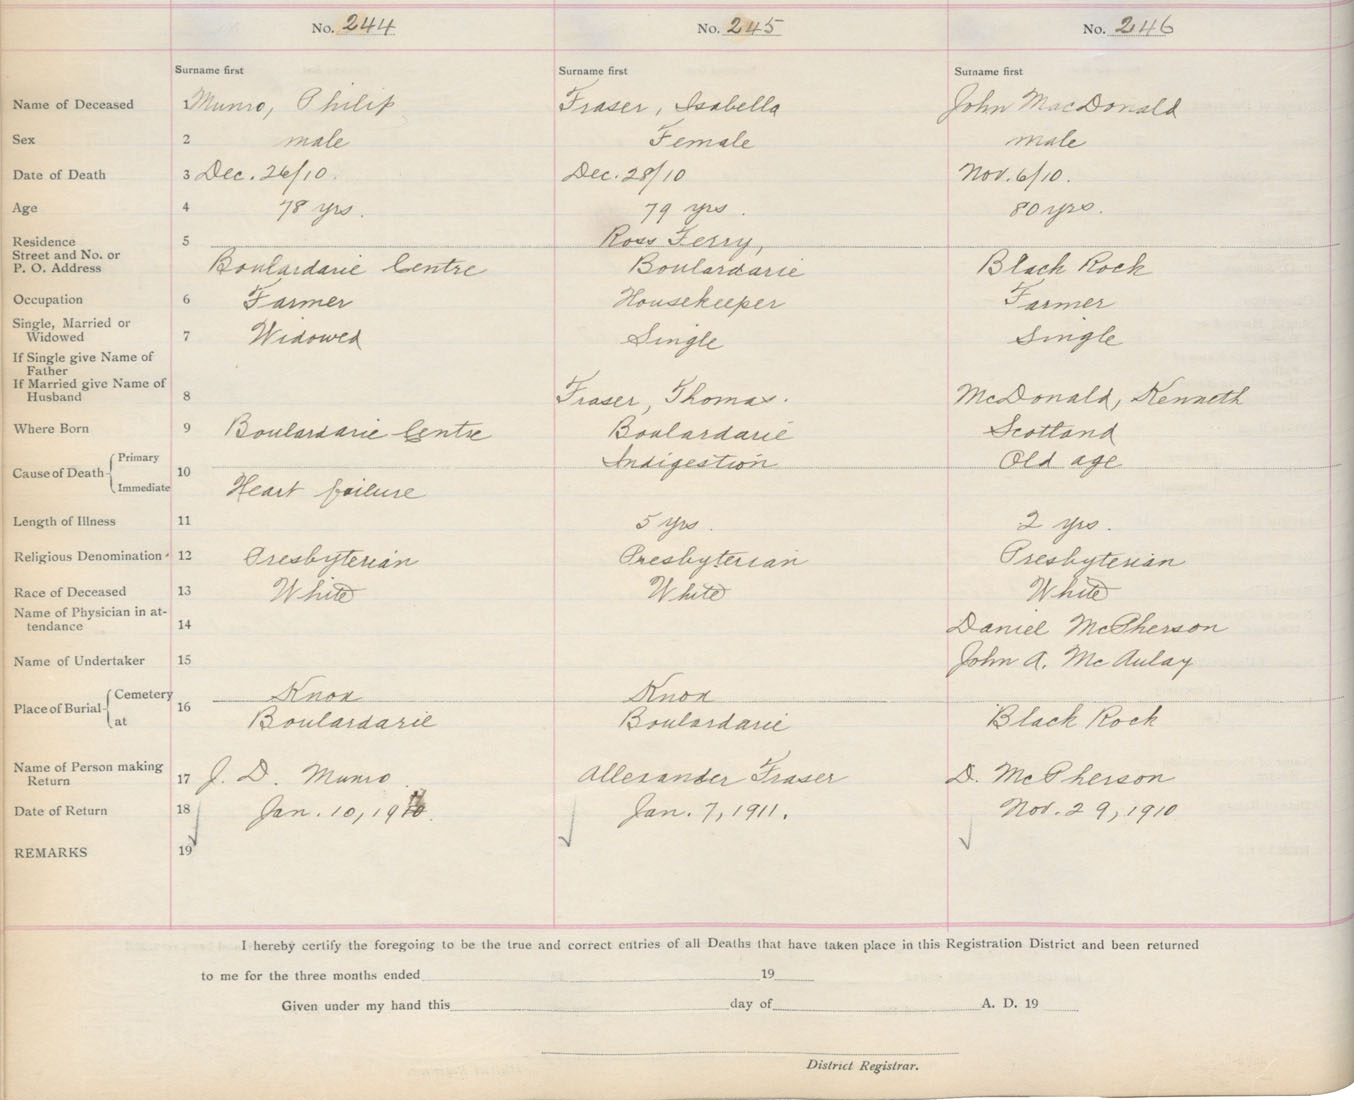 No. 244 No. 245 No. 246
Surname first Surname first Surname first
Name of Deceased 1 Munro, Philip Fraser, Isabella John MacDonald
Sex 2 male Female male
Date of Death 3 Dec. 26/10. Dec. 28/10 Nov. 6/10.
Age 4 78 yrs. 79 yrs. 80 yrs.
Residence 5 Ross Ferry,
Street and No. or
P. O. Address Boulardarie Centre Boulardarie Black Rock
Occupation 6 Farmer Housekeeper Farmer
Single, Married or
Widowed 7 Widowed Single Single
If Single give Name of
Father
If Married give Name of
Husband 8 Fraser, Thomas. McDonald, Kenneth
Where Born 9 Boulardarie Centre Boulardarie Scotland
Cause of Death Primary 10 Indigestion Old age
Immediate Heart failure
Length of Illness 11 5 yrs. 2 yrs.
Religious Denomination 12 Presbyterian Presbyterian Presbyterian
Race of Deceased 13 White White White
Name of Physician in at-
tendance 14 Daniel McPherson
Name of Undertaker 15 John A. McAulay
Place of Burial Cemetery 16 Knox Knox
at Boulardarie Boulardarie Black Rock
Name of Person making
Return 17 J. D. Munro Allexander Fraser D. McPherson
Date of Return 18 Jan. 10, Jan. 7, 1911. Nov. 29, 1910
REMARKS 19
I hereby certify the foregoing to be the true and correct entries of all Deaths that have taken place in this Registration District and been returned
to me for the three months ended 19
Given under my hand this day of A. D. 19
District Registrar.